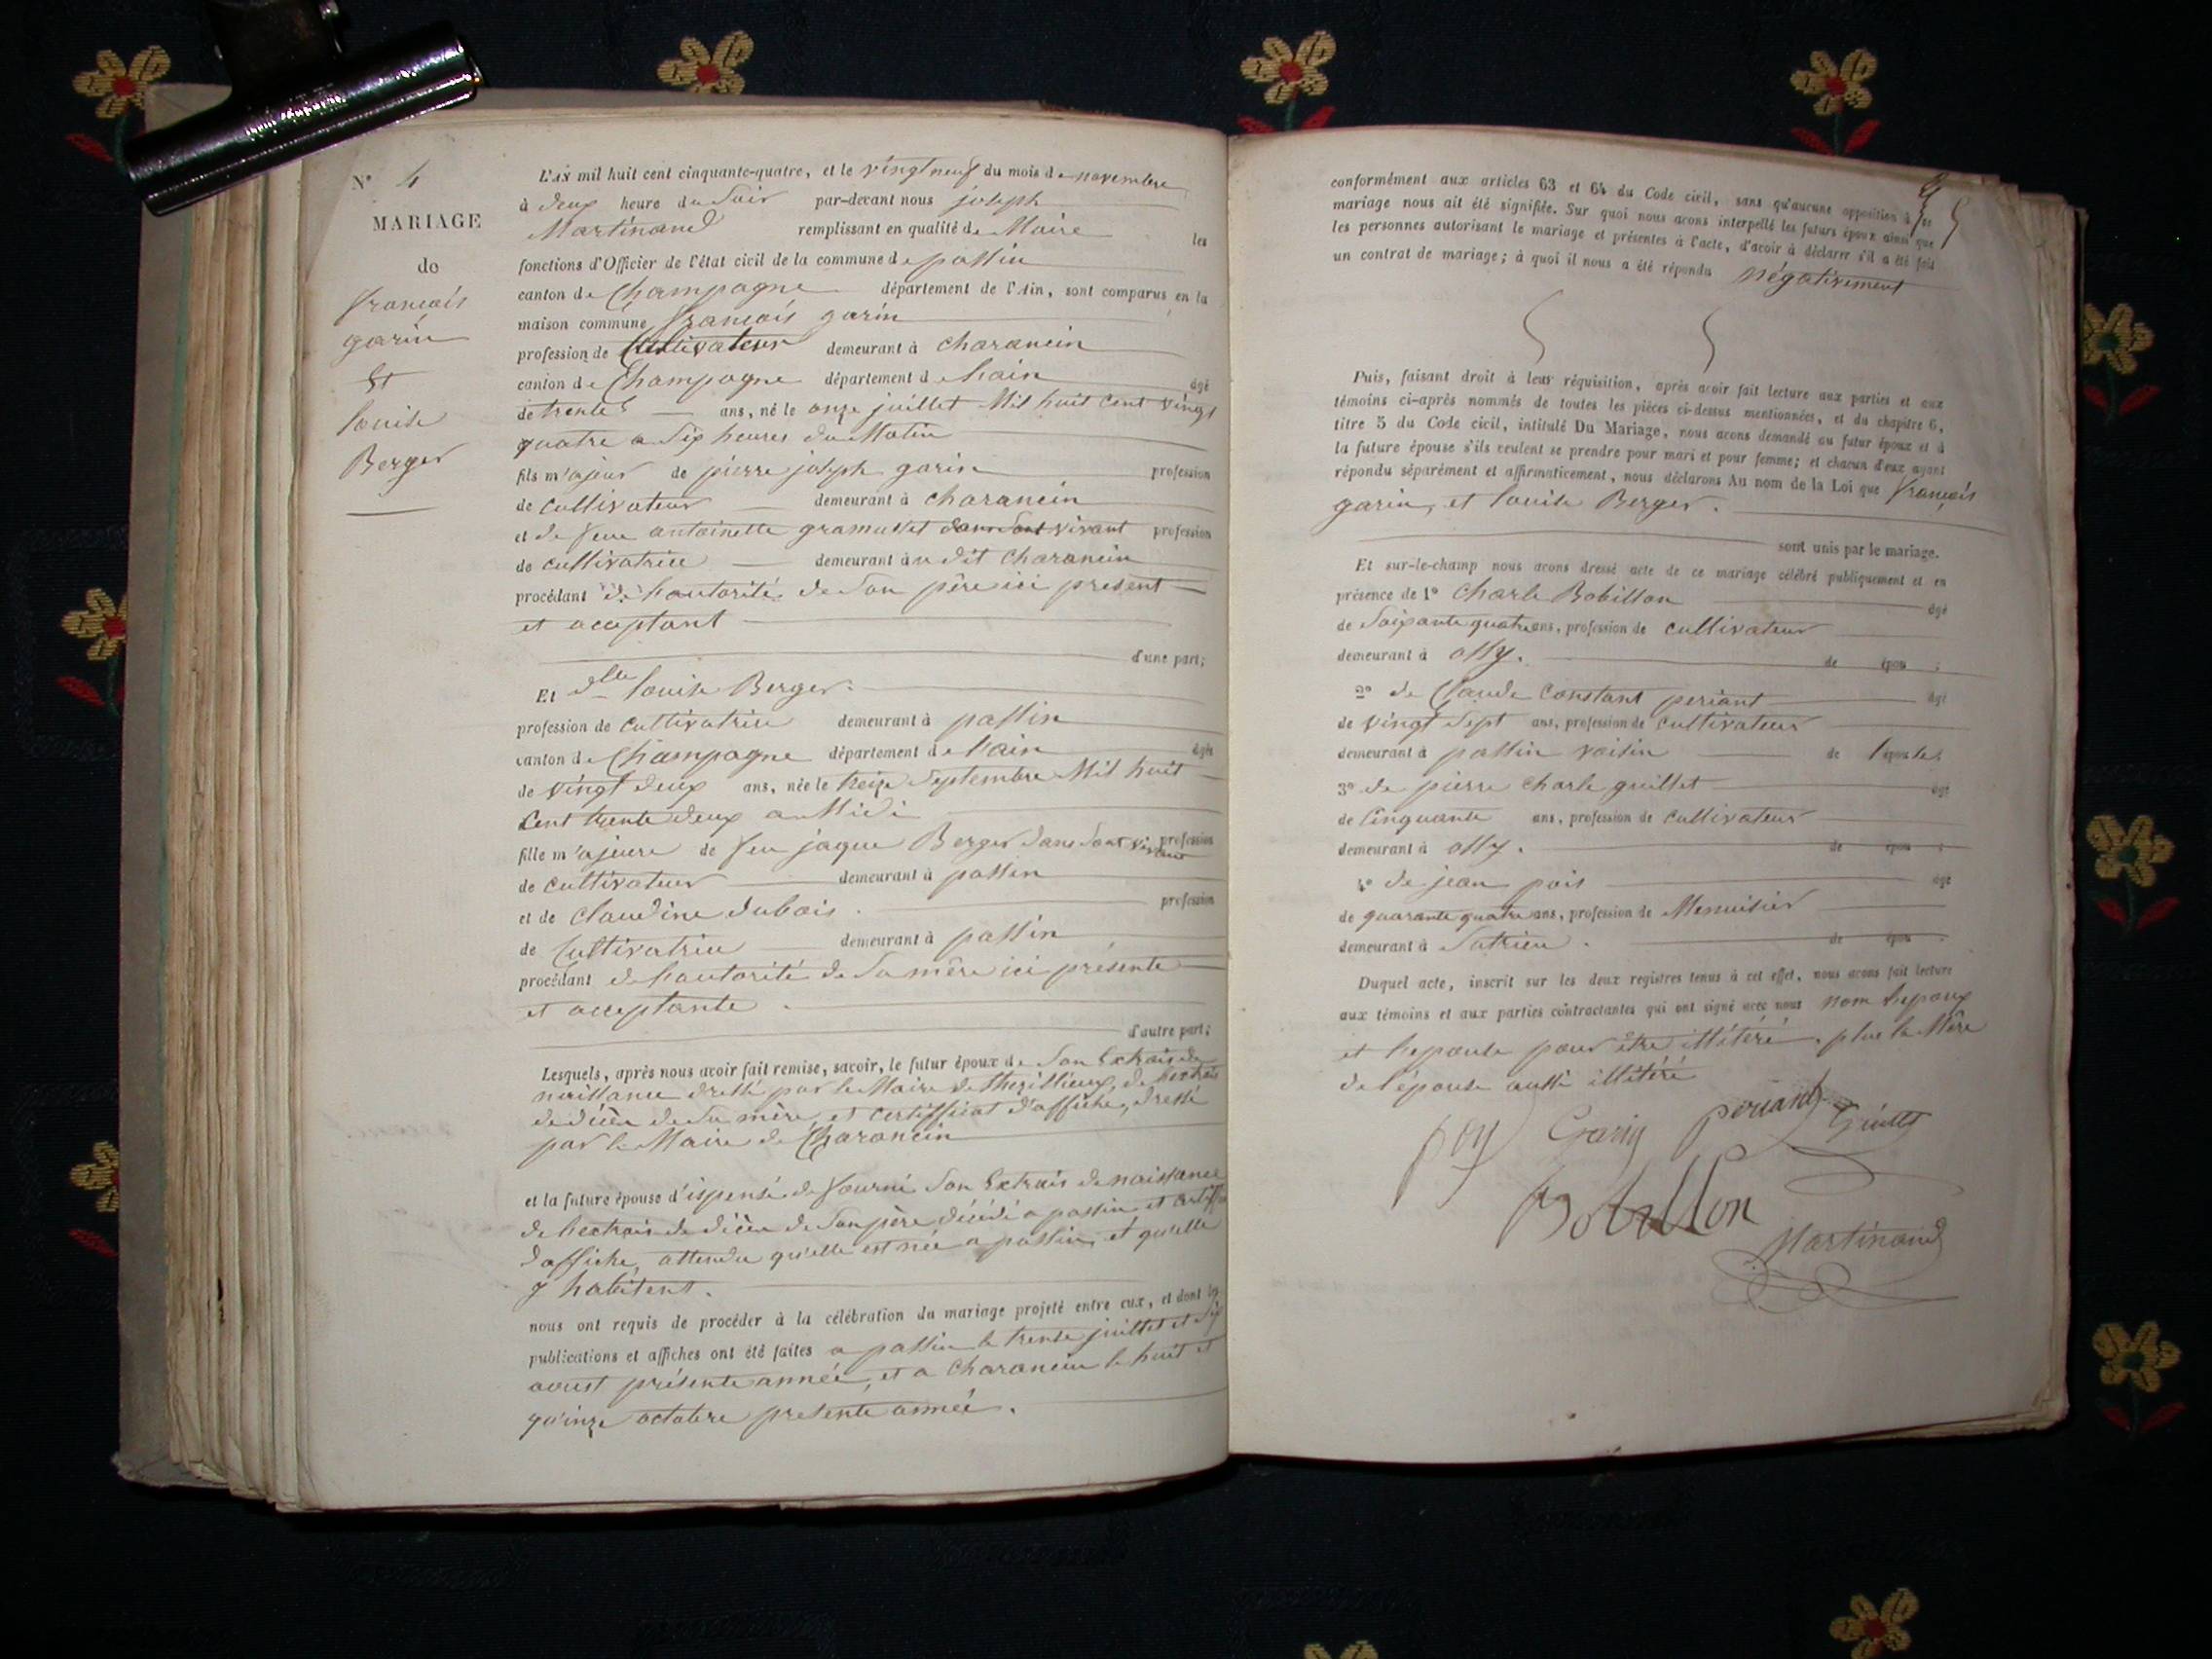 N° 4
MARIAGE
de
françois
garin
Et
louise
Berger
L'AN mil huit cent cinquante-quatre, et le vingt neuf du mois de novembre
à deux heure du Soir par-devant nous joseph
Martinand remplissant en qualité de Maire les
fonctions d'Officier de l'état civil de la commune de passin
canton de Champagne département de l'Ain, sont comparus en la
maison commune françois garin
profession de Cultivateur demeurant à charancin
canton de Champagne département de lain âgé
de trente ans, né le onze juillet Mil huit Cent vingt
quatre a dix heures du Matin
fils m'ajeur de pierre joseph garin profession
de cultivateur demeurant à charancin
et de feue antoinette gramusset dans sont vivant profession
de cultivatrice demeurant au dit charancin
procédant de lautorité de Son père ici présent
et acceptant
d'une part;
Et dlle louise Berger.
profession de cultivatrice demeurant à passin
canton de Champagne département de l'ain âgée
de vingt deux ans, née le treize Septembre Mil huit
Cent trente deux a Midi
fille m'ajeure de feu jaque Berger dans sont vivant profession
de cultivateur demeurant à passin
et de claudine dubois. profession
de Cultivatrice demeurant à passin
procédant de lautorité de Sa mère ici présente
et acceptante.
d'autre part;
Lesquels, après nous avoir fait remise, savoir, le futur époux de Son Extrais de
naissance dressé par le Maire de thezillieux, de lextrais
de dicès de Sa mère, et certifficat d'affiche, dressé
par le Maire de Charancin
et la future épouse d'ispensé de fourni Son Extrais de naissance
de lextrais de dicès de Son père, décédé a passin et certiff
daffiche, attendu qu'elle est née a passin, et qu'elle
y habitent.
nous ont requis de procéder à la célébration du mariage projeté entre eux, et dont les
publications et affiches ont été faites a passin le trente juillet et Six
aoust présente année, et a Charancin le huit et
quinze octobre présente année.
conformément aux articles 63 et 64 du Code civil, sans qu'aucune opposition à ce
mariage nous ait été signifiée. Sur quoi nous avons interpellé les futurs époux ainsi que
les personnes autorisant le mariage et présentes à l'acte, d'avoir à déclarer s'il a été fait
un contrat de mariage; à quoi il nous a été répondu négativement
Puis, faisant droit à leur réquisition, après avoir fait lecture aux parties et aux
témoins ci-après nommés de toutes les pièces ci-dessus mentionnées, et du chapitre 6,
titre 5 du Code civil, intitulé Du Mariage, nous avons demandé au futur époux et à
la future épouse s'ils veulent se prendre pour mari et pour femme; et chacun d'eux ayant
répondu séparément et affirmativement, nous déclarons Au nom de la Loi que françois
garin, et louise Berger.
sont unis par le mariage.
Et sur-le-champ nous avons dressé acte de ce mariage célébré publiquement et en
présence de 1° Charle Bobillon âgé
de Soixante quatre ans, profession de cultivateur
demeurant à ossy. de épou ;
2° de Claude Constant periant âgé
de vingt Sept ans, profession de cultivateur
demeurant à passin voisin de l'épouse;
3° de pierre charle guillet âgé
de Cinquante ans, profession de cultivateur
demeurant à ossy. de épou ;
4° de jean pois âgé
de quarante quatre ans, profession de Menuisier
demeurant à Sutrieu. de épou .
Duquel acte, inscrit sur les deux registres tenus à cet effet, nous avons fait lecture
aux témoins et aux parties contractantes qui ont signé avec nous nom lepoux
et lepouse pour être illétéré, plus la Mère
de l'épouse aussi illétéré
poy Garin periand Guillet
Bobillon
Martinand